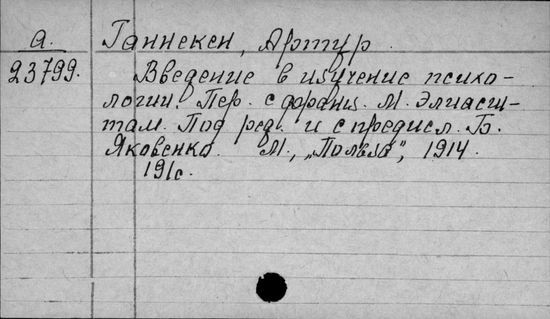 а. Ганнекен, Артур
23799. Введение в изучение психо-
логии. Пер. с франц. М. Элиасш-
там. Под ред. и с предисл. Б.
Яковенко. М., „Польза", 1914.
191с.